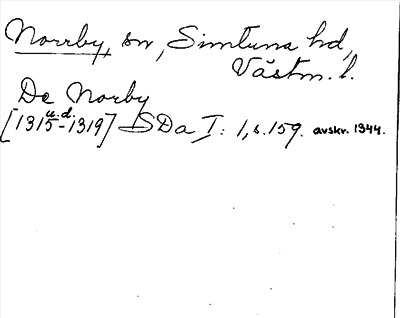 Norrby, sn, Simtuna hd,
Västm. l.
De Norby
u.d.
[1315-1319] SDa I: 1, s. 159. avskr. 1344.